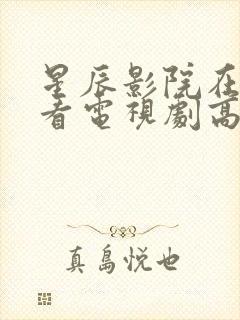 星辰影院在
看電視劇高
真島悅也